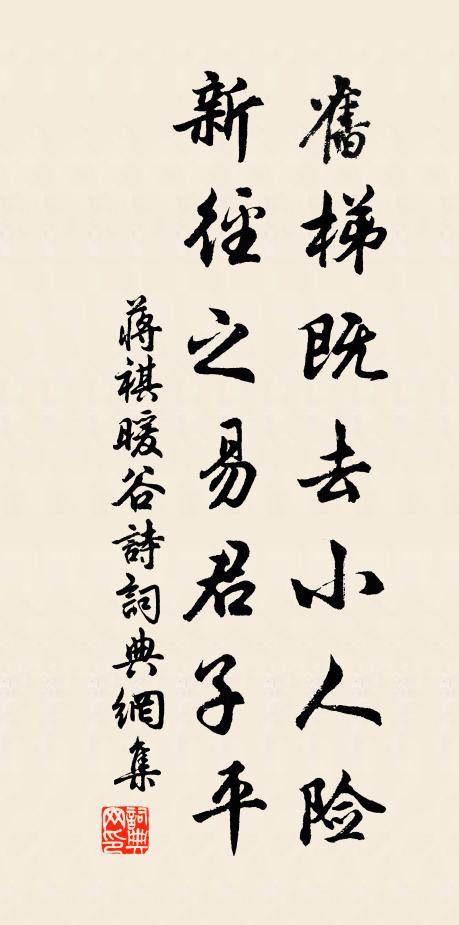 舊梯既去小人险
新徑之易君子平
蔣祺暖谷詩詞典網集
詞典网印